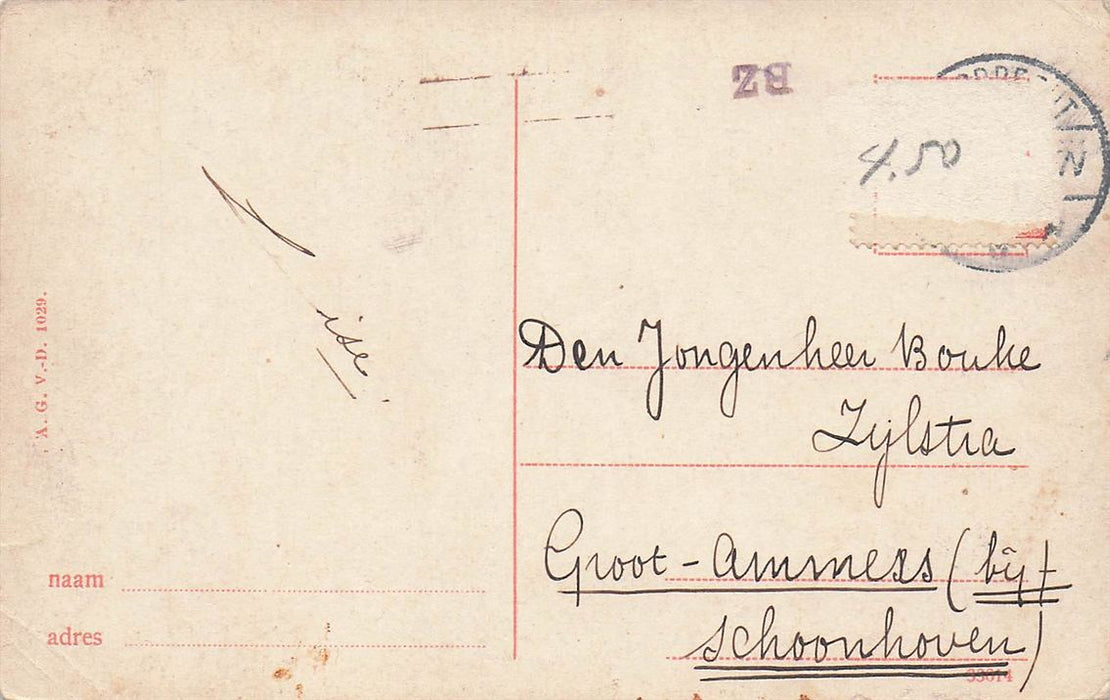 BZ
4.50
ise
Den Jongenheer Bouke
Zijlstra
Groot-Ammers (bij
Schoonhoven)
A. G. V.-D. 1029.
naam
adres
33614